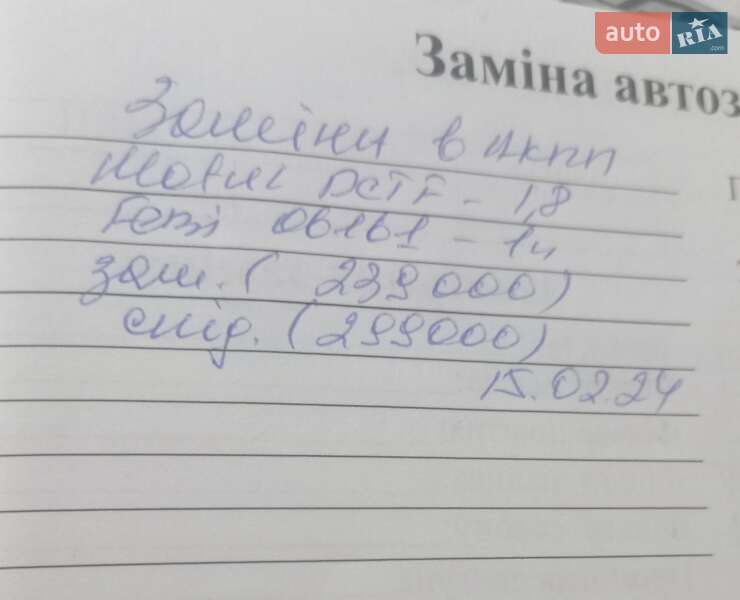 auto RIA .com
Заміна автоз
Заміни в АКПП
Motul DCTF - 1,8
Febi 06161 - 1л
зам. ( 239000)
слід. (299000)
15.02.24